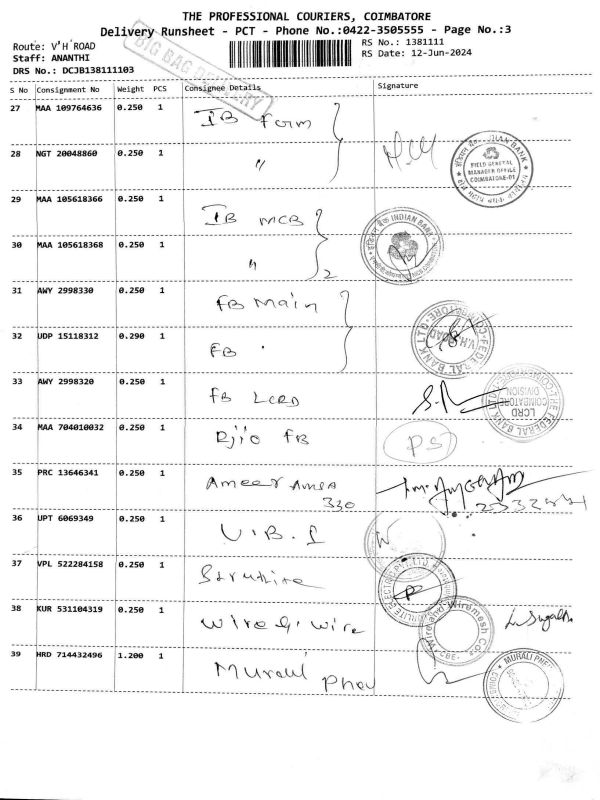 THE PROFESSIONAL COURIERS, COIMBATORE
Delivery Runsheet - PCT - Phone No.:0422-3505555 - Page No.:3
Route: V'H ROAD
RS No.: 1381111
Staff: ANANTHI
RS Date: 12-Jun-2024
DRS No.: DCJB138111103
BIG BAG DELIVERY
S No Consignment No Weight PCS Consignee Details Signature
27 MAA 109764636 0.250 1 IB Form
28 NGT 20048860 0.250 1 "
INDIAN BANK
FIELD GENERAL
MANAGER OFFICE
COIMBATORE-01
29 MAA 105618366 0.250 1 IB MCB
30 MAA 105618368 0.250 1 " 2
INDIAN BANK
31 AWY 2998330 0.250 1 FB Main
32 UDP 15118312 0.290 1 FB "
FEDERAL BANK LTD. COIMBATORE
V.H. ROAD
33 AWY 2998320 0.250 1 FB LCRD
THE FEDERAL BANK LTD
LCRD
DIVISION
COIMBATORE
34 MAA 704010032 0.250 1 Rjio FB
35 PRC 13646341 0.250 1 Ameer
330
36 UPT 6069349 0.250 1 U.B.I
37 VPL 522284158 0.250 1
38 KUR 531104319 0.250 1 Wire & Wire
Wire and Wiremesh Co.
CBE
39 HRD 714432496 1.200 1 Murali Phou
MURALI PNE